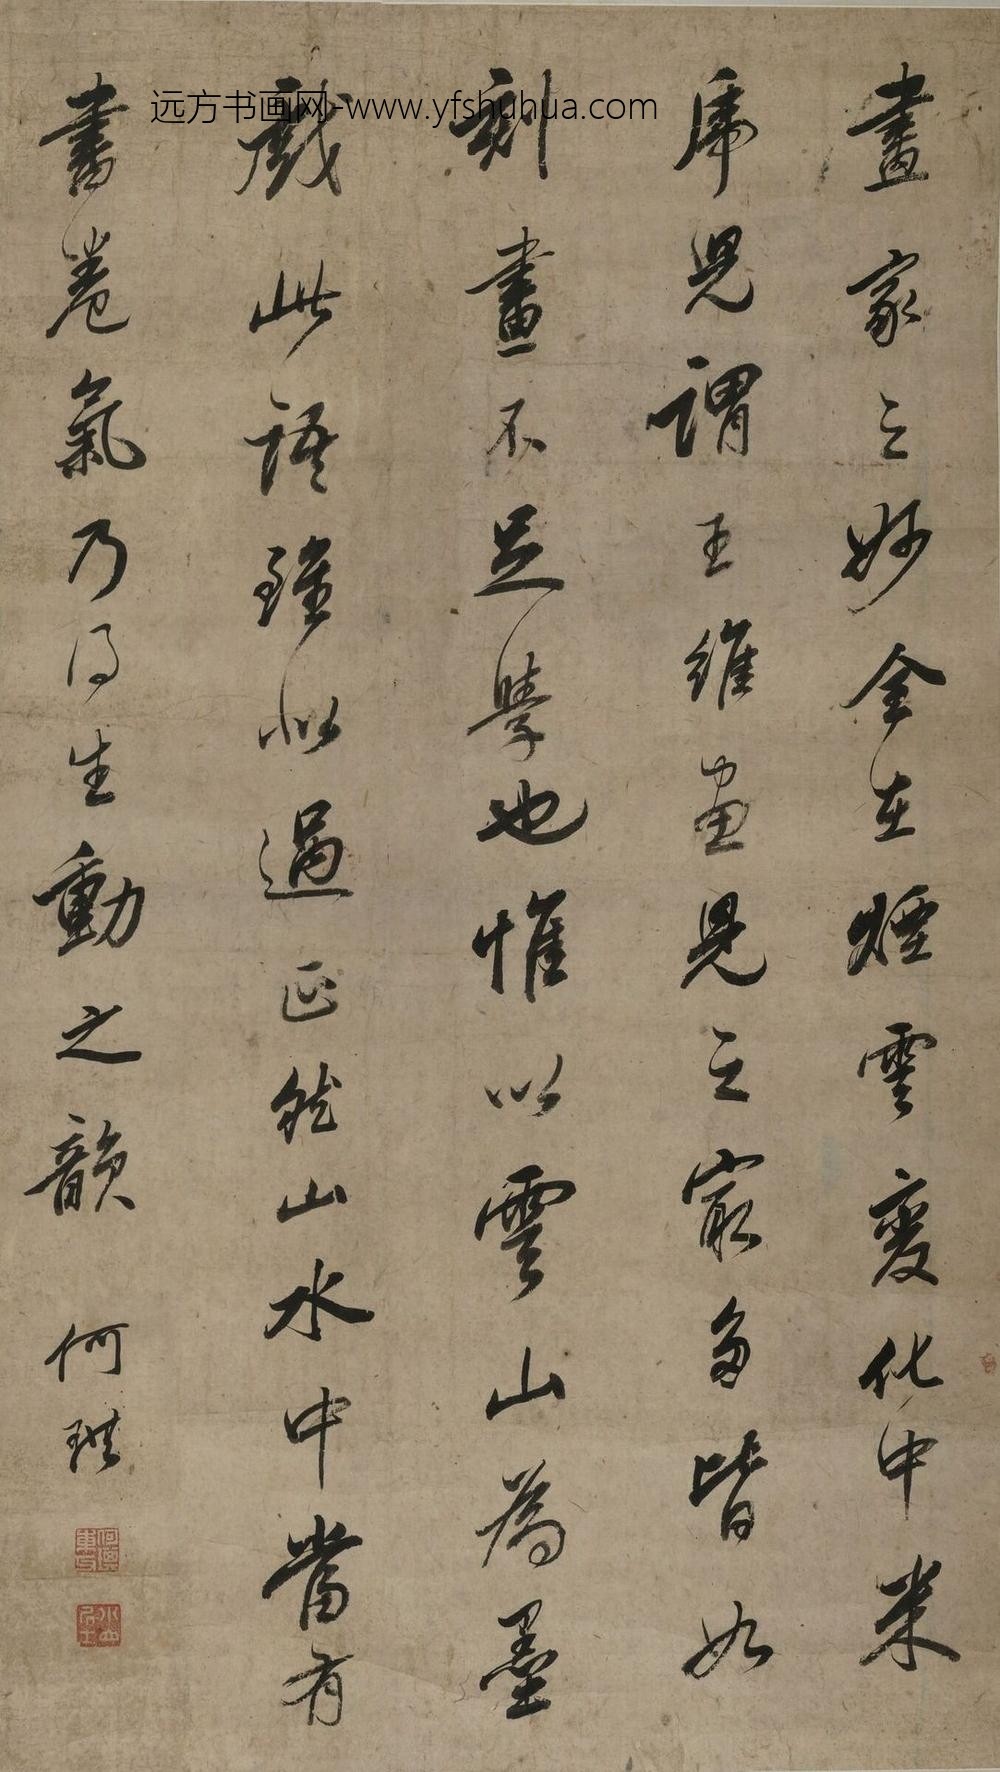 远方书画网-www.yfshuhua.com
畫家之妙全在煙雲變化中米
虎兒謂王維畫見之最多皆如
刻畫不足學也惟以雲山為墨
戲此語雖似過正然山水中當有
書卷氣乃得生動之韻
何